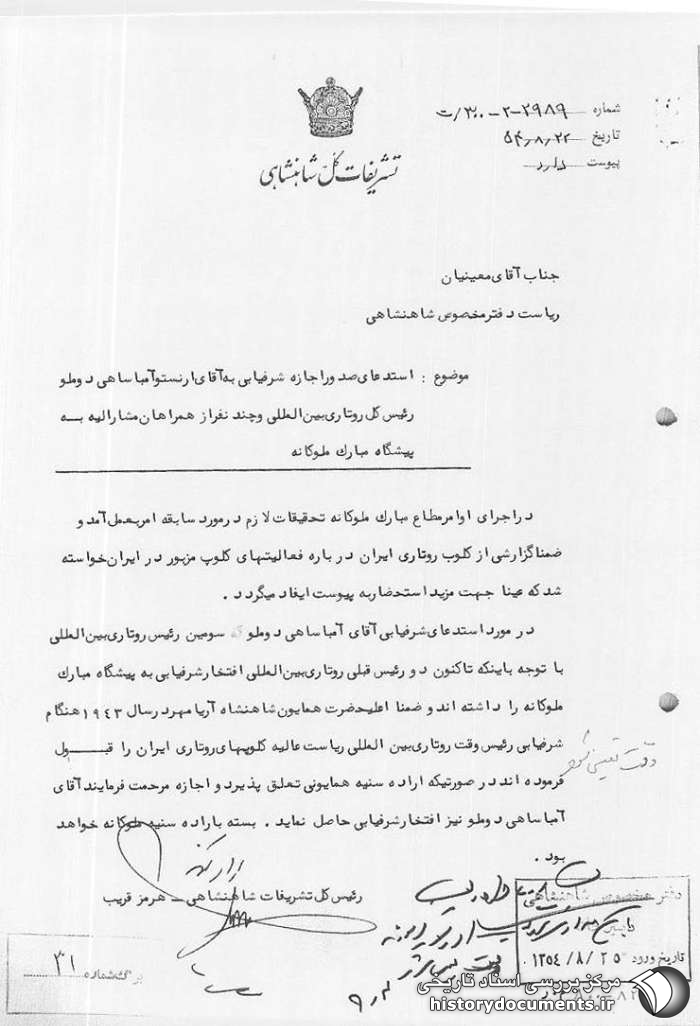 شماره ۲۹۸۹-۲-۳۰۰/ت
تاریخ ۵۴/۸/۲۲
پیوست دارد
تشریفات کل شاهنشاهی
جناب آقای معینیان
ریاست دفتر مخصوص شاهنشاهی
موضوع : استدعای صدور اجازه شرفیابی به آقای ارنستو آمباساهی دوملو
رئیس کل روتاری بین‌المللی و چند نفر از همراهان مشارالیه به
پیشگاه مبارك ملوکانه
در اجرای اوامر مطاع مبارك ملوکانه تحقیقات لازم در مورد سابقه امر بعمل آمد و
ضمنا گزارشی از کلوب روتاری ایران در باره فعالیتهای کلوپ مزبور در ایران خواسته
شد که عینا جهت مزید استحضار به پیوست ایفاد میگردد .
در مورد استدعای شرفیابی آقای آمباساهی دوملو که سومین رئیس روتاری بین‌المللی
با توجه باینکه تاکنون دو رئیس قبلی روتاری بین‌المللی افتخار شرفیابی به پیشگاه مبارك
ملوکانه را داشته اند و ضمنا اعلیحضرت همایون شاهنشاه آریامهر در سال ۱۹۴۳ هنگام
شرفیابی رئیس وقت روتاری بین المللی ریاست عالیه کلوپهای روتاری ایران را قبول
فرموده اند در صورتیکه اراده سنیه همایونی تعلق پذیرد و اجازه مرحمت فرمایند آقای
آمباساهی دوملو نیز افتخار شرفیابی حاصل نماید . بسته باراده سنیه ملوکانه خواهد
بود .
وقت تعیین شود
رئیس کل تشریفات شاهنشاهی – هرمز قریب
دفتر مخصوص شاهنشاهی
تاریخ ورود ۱۳۵۴/۸/۲۵
برگشماره ۳۱
مرکز بررسی اسناد تاریخی
historydocuments.ir